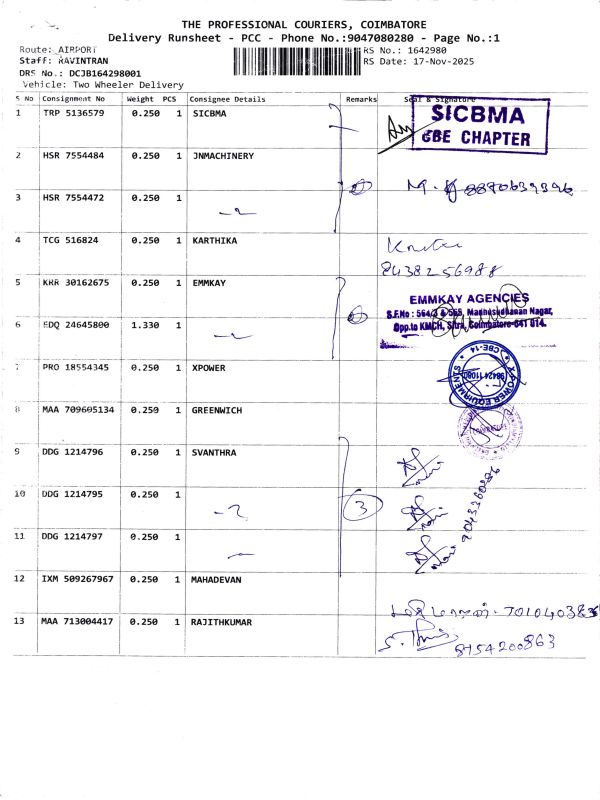 THE PROFESSIONAL COURIERS, COIMBATORE
Delivery Runsheet - PCC - Phone No.:9047080280 - Page No.:1
Route: AIRPORT
RS No.: 1642980
Staff: RAVINTRAN
RS Date: 17-Nov-2025
DRS No.: DCJB164298001
Vehicle: Two Wheeler Delivery
S No Consignment No Weight PCS Consignee Details Remarks Seal & Signature
1 TRP 5136579 0.250 1 SICBMA
SICBMA
CBE CHAPTER
2 HSR 7554484 0.250 1 JNMACHINERY
8870639396
3 HSR 7554472 0.250 1
4 TCG 516824 0.250 1 KARTHIKA
8438256988
5 KRR 30162675 0.250 1 EMMKAY
EMMKAY AGENCIES
S.F.No : 564/3 & 565, Madhusudhanan Nagar,
Opp.to KMCH, Sitra, Coimbatore-641 014.
6 EDQ 24645800 1.330 1
7 PRO 18554345 0.250 1 XPOWER
X POWER EQUIPMENTS
CBE-14
8 MAA 709605134 0.250 1 GREENWICH
9 DDG 1214796 0.250 1 SVANTHRA
10 DDG 1214795 0.250 1
3
11 DDG 1214797 0.250 1
12 IXM 509267967 0.250 1 MAHADEVAN
13 MAA 713004417 0.250 1 RAJITHKUMAR
8754200863